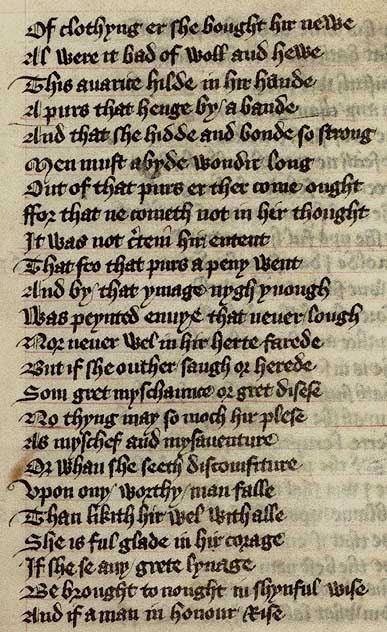 Of clothyng er she bought hir newe
Al were it bad of woll and hewe
This auarice hilde in hir hande
A purs that henge by / a bande
And that she hidde and bonde so strong
Men must abyde wondir long
Out of that purs er ther come ought
ffor that ne cometh not in hir thought
It was not c̃tein hir entent
That fro that purs a peny went
And by / that ymage nygh ynough
Was peynted enuye that neuer lough
Nor neuer wel in hir herte farede
But if she outher saugh or herede
Som gret myschaunce or gret disese
No thyng may so moch hir plese
As myschef and mysauenture
Or whan she seeth discomfiture
Vpon ony / worthy / man falle
Than likith hir wel with alle
She is ful glade in hir corage
If she se any / grete lynage
Be brought to nought in shynful wise
And if a man in honour rise